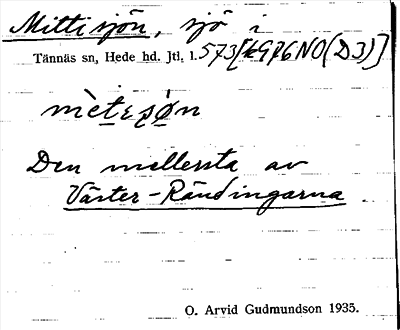 Mittisjön, sjö i
Tännäs sn, Hede hd. Jtl, l. 573 [kGPGNO(D3)]
mètɛsøn
Den mellersta av
Väster-Rändingarna
O. Arvid Gudmundson 1935.